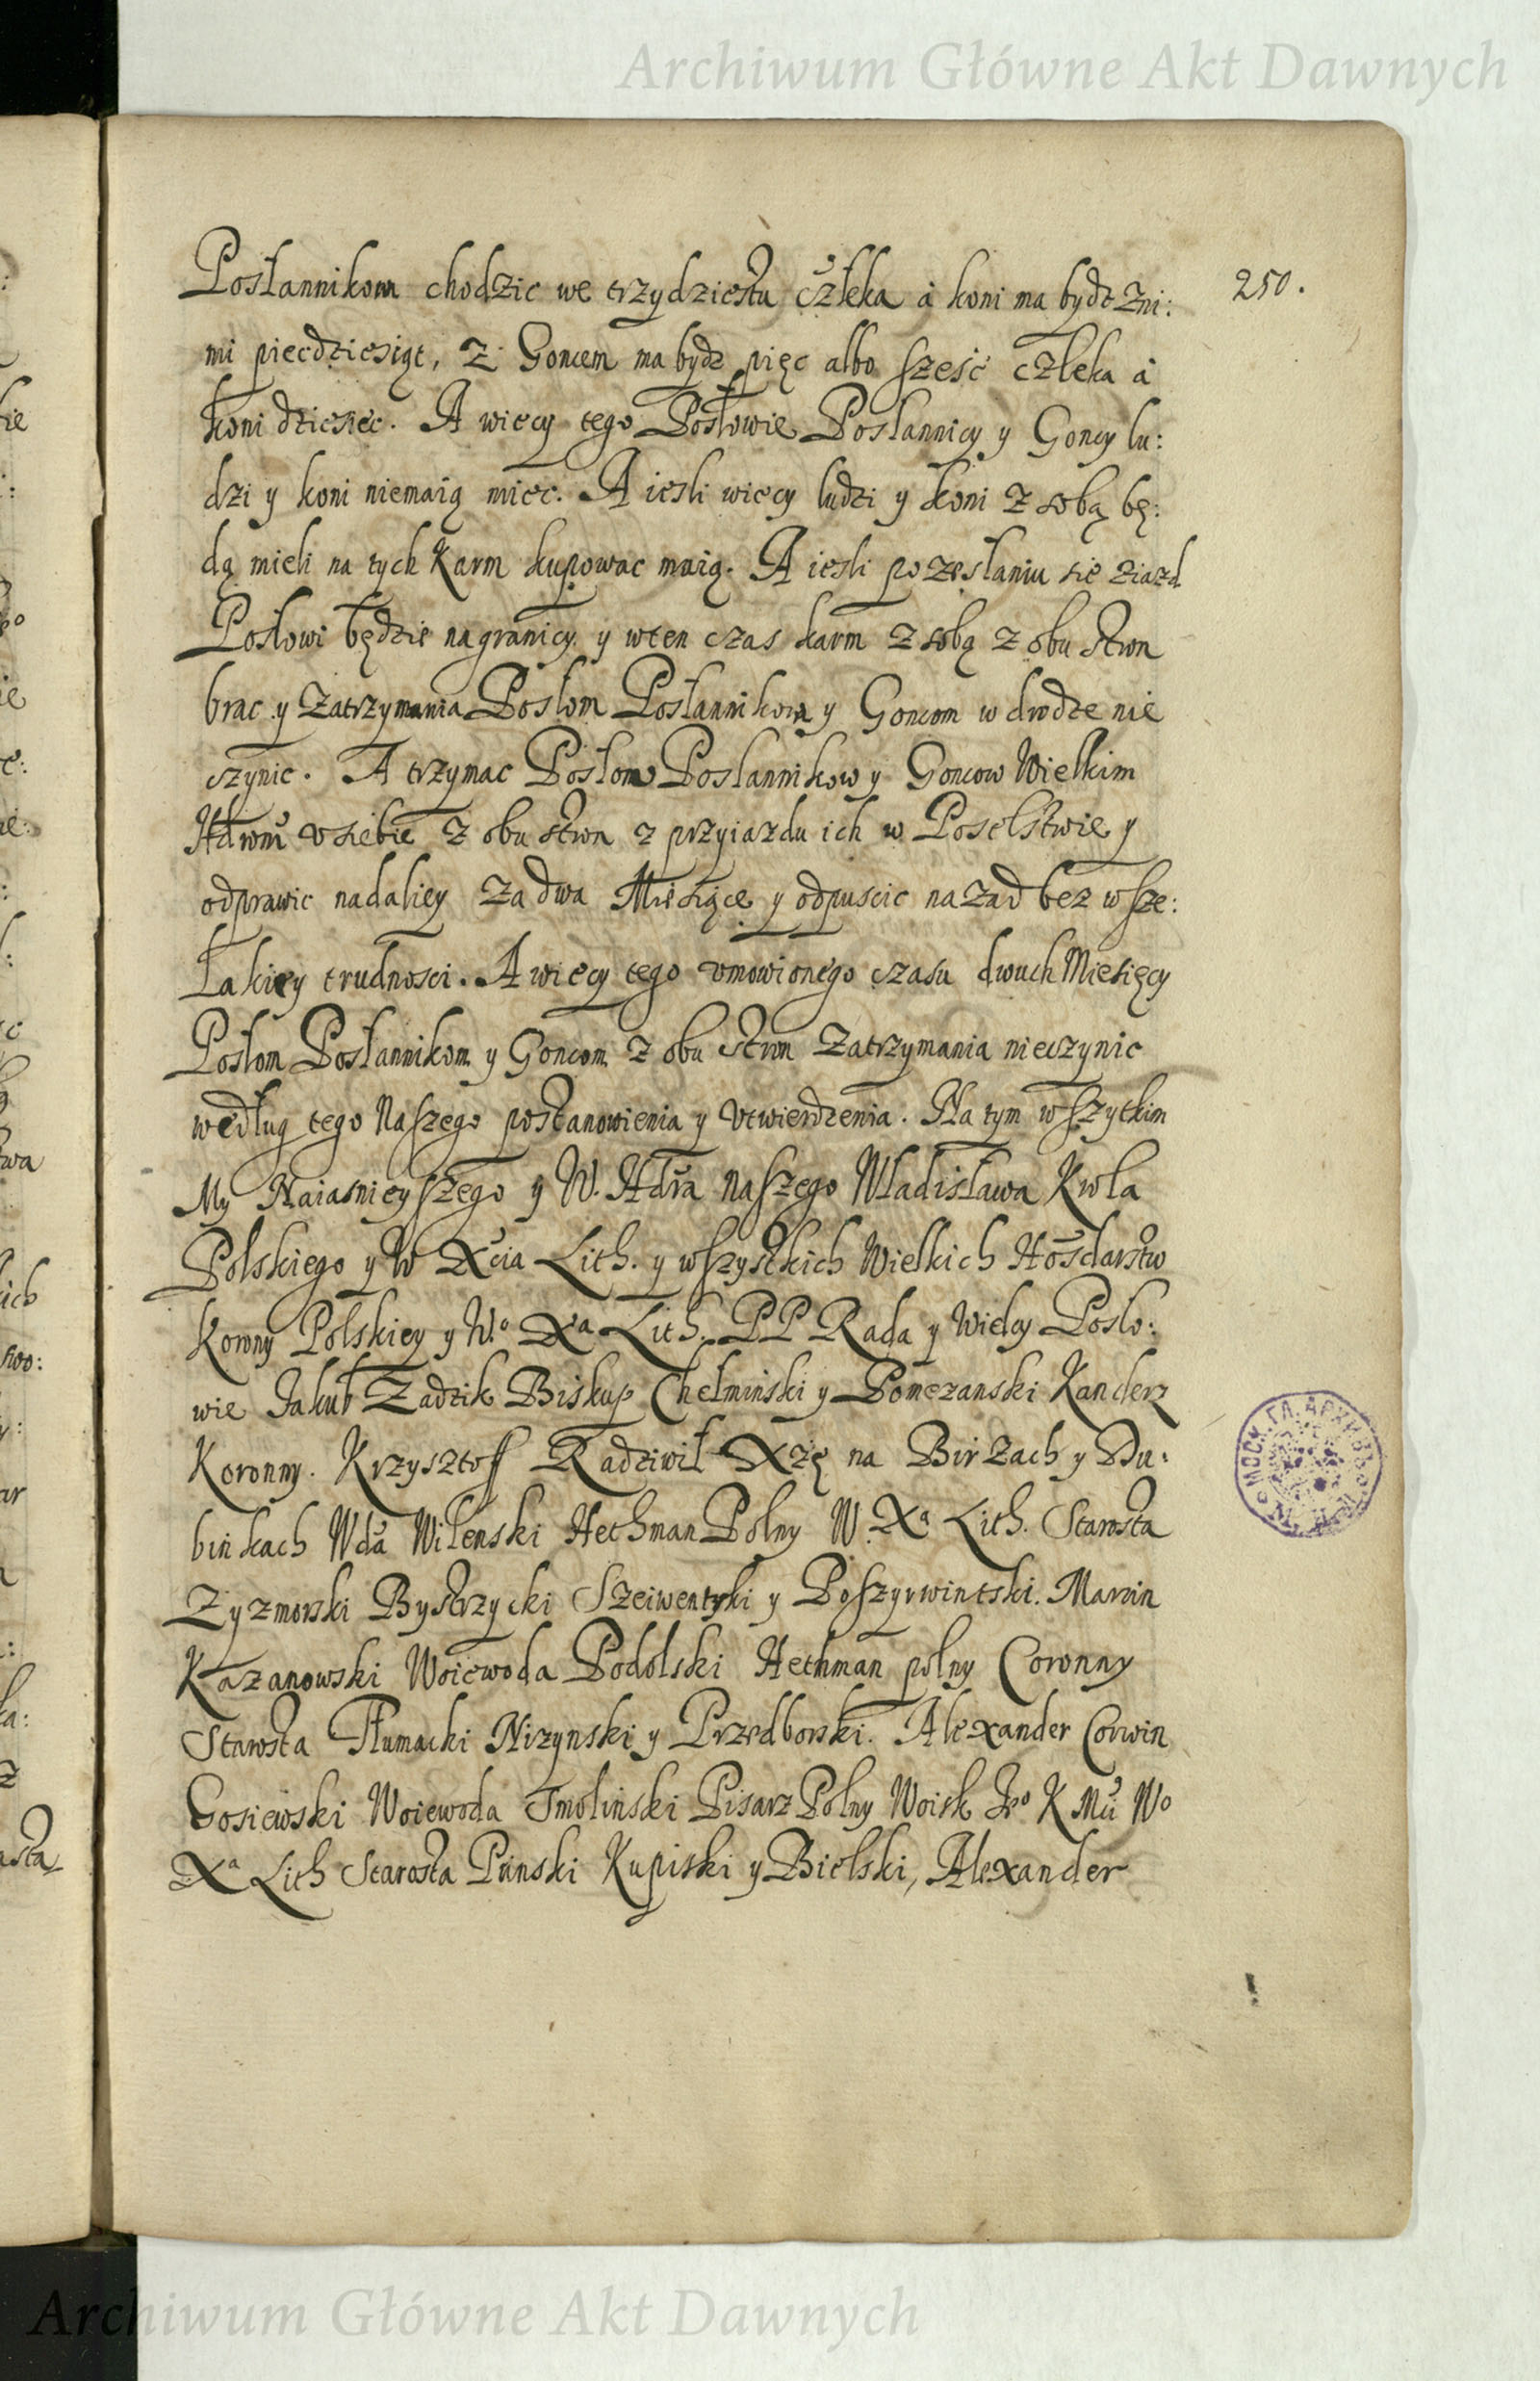 Archiwum Główne Akt Dawnych
250.
Posłannikom chodzic we trzydziestu człeka á koni ma bydz zni:
mi piecdziesiąt, z Goncem ma bydz pięc albo sześć człeka á
koni dziesięc. A wiecy tego Posłowie Posłannicy y Goncy lu:
dzi y koni niemaią miec. A iesli wiecy ludzi y koni z sobą bę:
dą mieli na tych Karm kupowac maią. A iesli po zesłaniu sie ziazd
Posłowi będzie na granicy y wten czas karm z sobą z obu stron
brac y zatrzymania Posłom Posłannikom y Goncom w drodze nie
czynic. A trzymac Posłow Posłannikow y Goncow Wielkim
Hdrom v siebie z obu stron z przyiazdu ich w Poselstwie y
odprawic nadaliey za dwa Miesiące y odpuscic nazad bez wsze:
lakiey trudnosci. A wiecy tego vmowionego czasu dwuch Miesięcy
Posłom Posłannikom y Goncom z obu stron zatrzymania nieczynic
według tego Naszego postanowienia y Vtwierdzenia. Na tym wszytkim
My Naiasnieyszego y W. Hdra naszego Władisława Krola
Polskiego y W Xcia Lith. y wszystkich Wielkich Hosdarstw
Korony Polskiey y W.o Xa Lith. PP Rada y Wielcy Posło:
wie Jakub Zadzik Biskup Chełmiński y Pomezanski Kanclerz
Koronny. Krzysztoff Radziwił Xżę na Birżach y Du:
binkach Wda Wilenski Hethman Polny W. Xa Lith. Starosta
Zyzmorski Bystrzycki Szeiwentski y Poszyrwintski. Marcin
Kazanowski Woiewoda Podolski Hethman polny Coronny
Starosta Tłumacki Nizynski y Przedborski. Alexander Corwin
Gosiewski Woiewoda Smolinski Pisarz Polny Woisk Jeo K Mci Wo
Xa Lith Starosta Puński Kupiski y Bielski, Alexander
Archiwum Główne Akt Dawnych